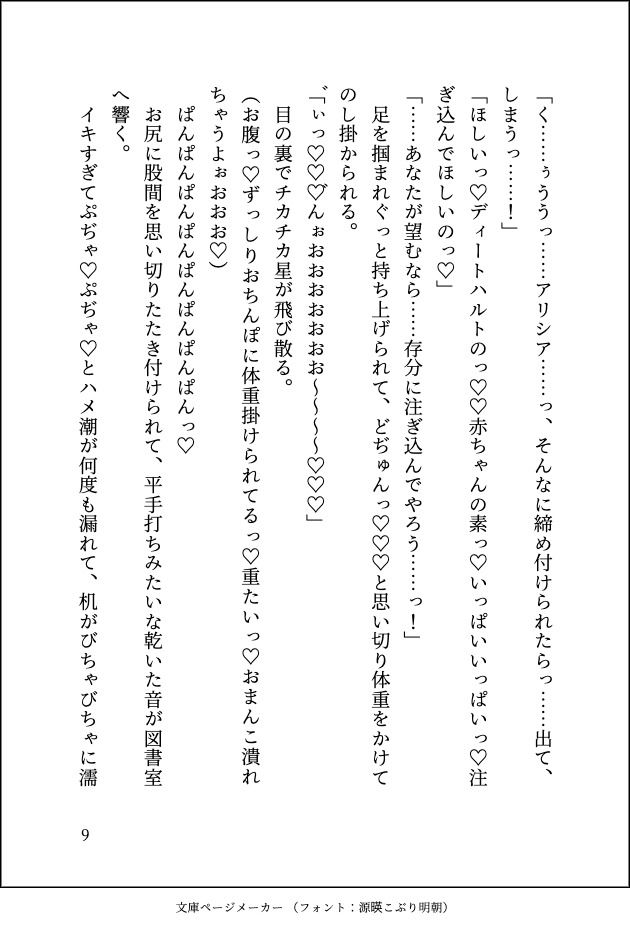 「く……ぅううっ……アリシア……っ、そんなに締め付けられたらっ……出て、
しまうっ……！」
「ほしいっ♡ディートハルトのっ♡♡赤ちゃんの素っ♡いっぱいいっぱいっ♡注
ぎ込んでほしいのっ♡」
「……あなたが望むなら……存分に注ぎ込んでやろう……っ！」
足を掴まれぐっと持ち上げられて、どぢゅんっ♡♡♡と思い切り体重をかけて
のし掛かられる。
「゛ぃっ♡♡♡゛んぉおおおおおおお～～～～♡♡♡」
目の裏でチカチカ星が飛び散る。
（お腹っ♡ずっしりおちんぽに体重掛けられてるっ♡重たいっ♡おまんこ潰れ
ちゃうよぉおおお♡）
ぱんぱんぱんぱんぱんぱんぱんぱんっ♡
お尻に股間を思い切りたたき付けられて、平手打ちみたいな乾いた音が図書室
へ響く。
イキすぎてぷぢゃ♡ぷぢゃ♡とハメ潮が何度も漏れて、机がびちゃびちゃに濡
9
文庫ページメーカー（フォント：源暎こぶり明朝）